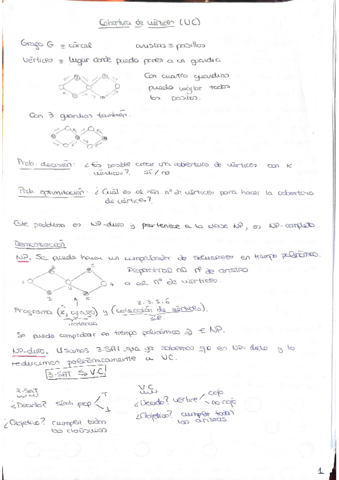 Cobertura de vértices (VC)
Grafo G = cárcel aristas = pasillos
Vértices = lugar donde puedo poner a un guardia
Con cuatro guardias
puedo vigilar todos
los pasillos.
Con 3 guardias también.
Prob. decisión: ¿Es posible crear una cobertura de vértices con K
vértices? sí/no
Prob. optimización: ¿Cuál es el mín nº de vértices para hacer la cobertura
de vértices?
Este problema es NP-duro y pertenece a la clase NP, es NP-completo.
Demostración
NP. Se puede hacer un comprobador de soluciones en tiempo polinómico.
nº de aristas
a al nº de vértices.
Programa (K, grafo) y (colección de vértices).
instancia
Se puede comprobar en tiempo polinómico ∈ NP.
NP-duro. Usamos 3-SAT que ya sabemos que es NP-duro y lo
reducimos polinómicamente a VC.
3-SAT ≤p VC
3-SAT VC
¿Decido? símb. prop. ¿Decido? vértice cojo
no cojo
¿Objetivo? cumplir todas ¿Objetivo? cumplir todas
las cláusulas las aristas
1